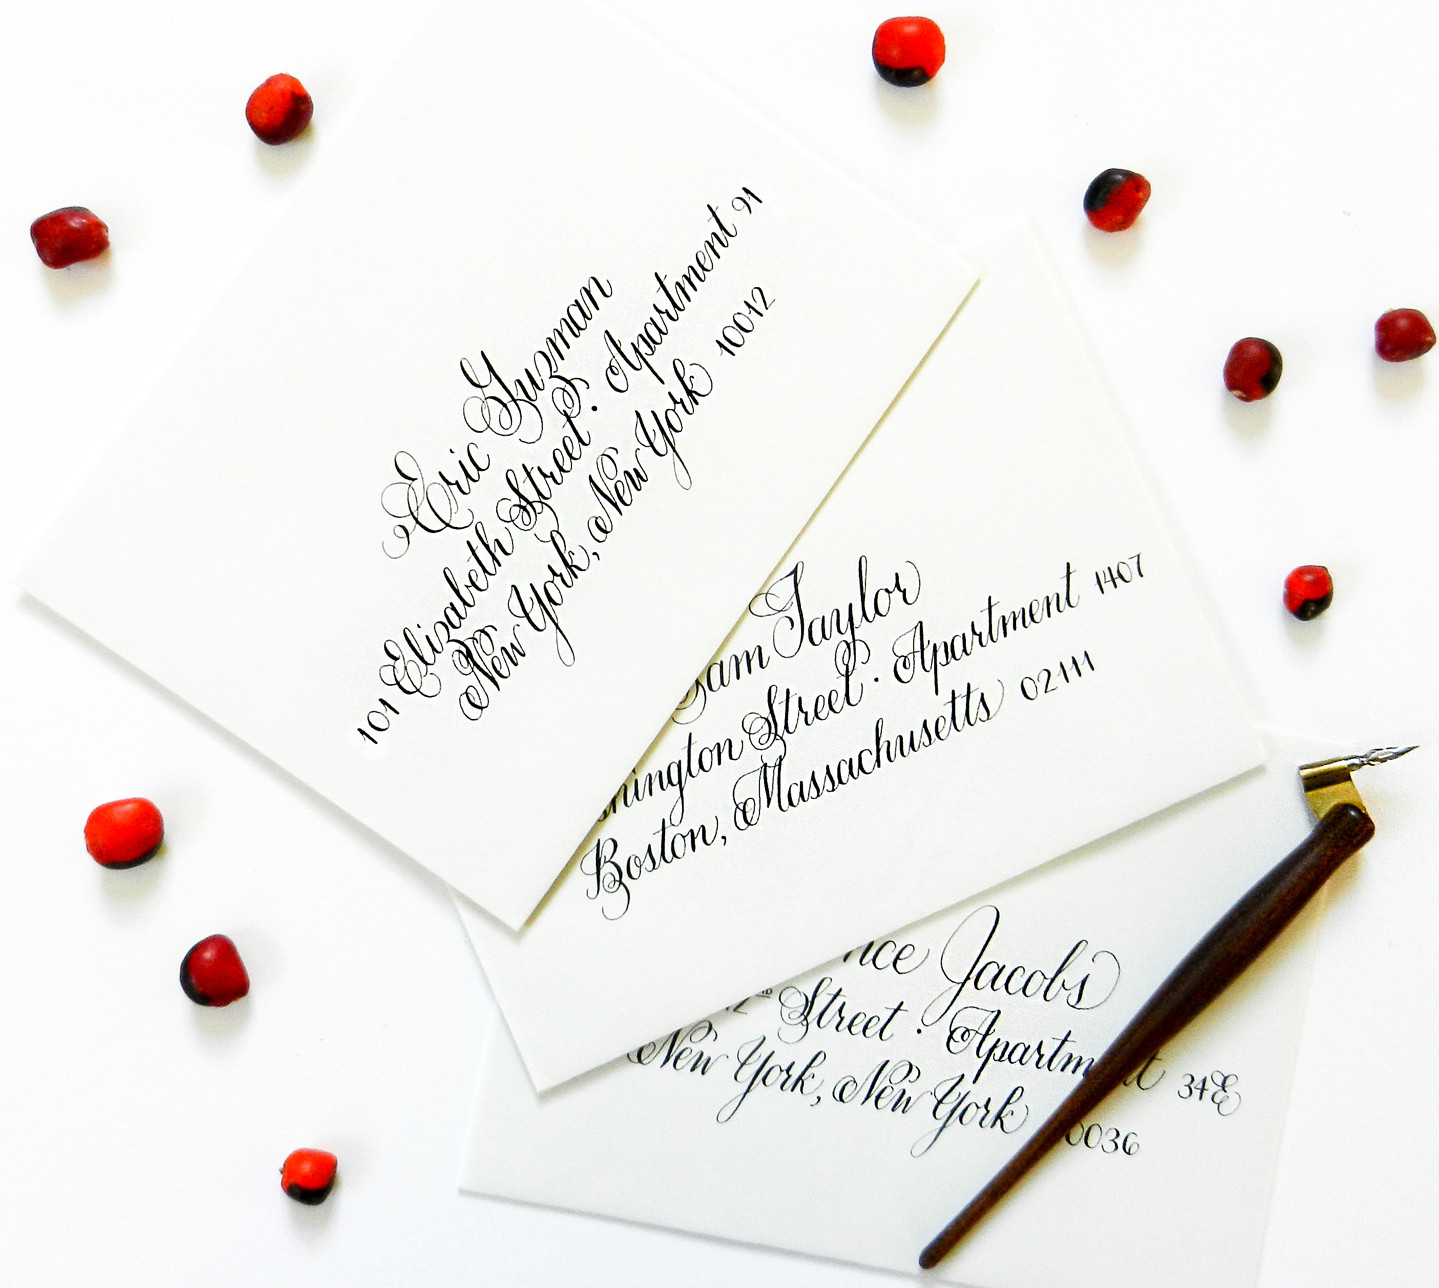 Eric Guzman
101 Elizabeth Street · Apartment 91
New York, New York 10012
Sam Taylor
hington Street · Apartment 1407
Boston, Massachusetts 02111
nce Jacobs
Street · Apartm t 34E
New York, New York 0036